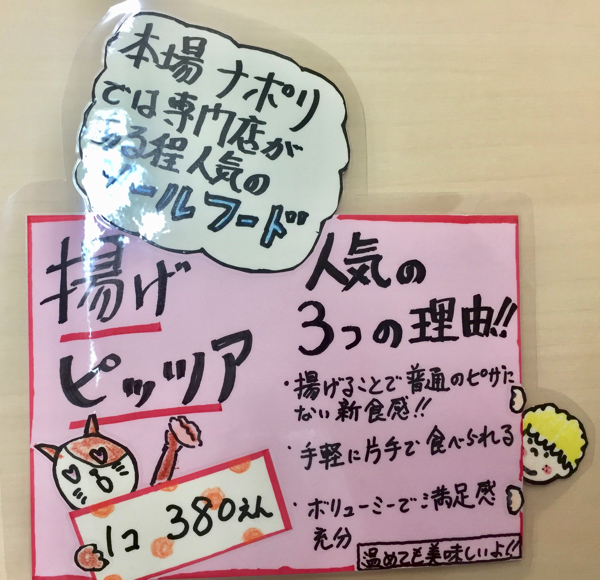 本場 ナポリ
では専門店が
ある程人気の
ソールフード
揚げ
ピッツア
1コ 380えん
人気の
3つの理由!!
・揚げることで普通のピザに
ない新食感!!
・手軽に片手で食べられる
・ボリューミーでご満足感
充分
温めても美味しいよ!!